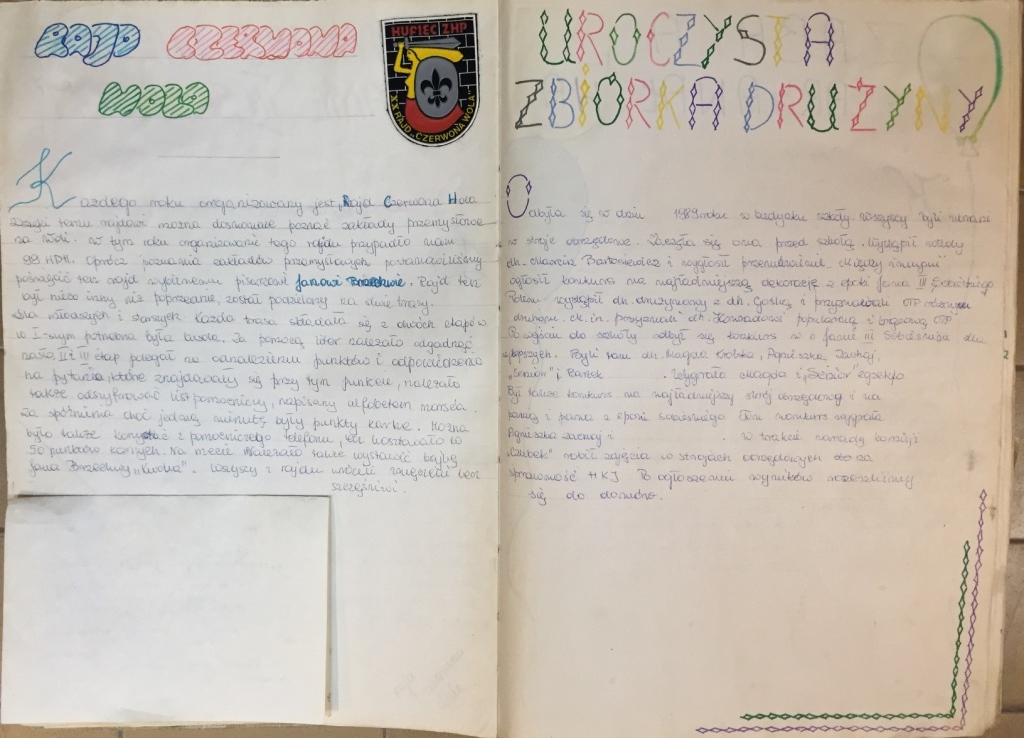 RAJD CZERWONA
WOLA
HUFIEC ZHP
XX RAJD „CZERWONA WOLA”
Każdego roku organizowany jest „Rajd Czerwona Wola
Dzięki temu rajdowi można doskonale poznać zakłady przemysłowe
na Woli. W tym roku organizowanie tego rajdu przypadło nam
99 HDH. Oprócz poznania zakładów przemysłowych postanowiliśmy
poświęcić ten rajd wybitnemu pisarzowi Janowi Brzechwie. Rajd ten
był nieco inny niż poprzednie, został podzielony na dwie trasy.
Dla młodszych i starszych. Każda trasa składała się z dwóch etapów
w I-szym potrzebna była busola. Za pomocą liter należało odgadnąć
hasło, II i III etap polegał na odnalezieniu punktów i odpowiedzeniu
na pytania, które znajdowały się przy tym punkcie, należało
także odszyfrować list pomocniczy, napisany alfabetem morse'a.
Za spóźnienia choć jedną minutę były punkty karne. Można
było także korzystać z pomocniczego telefonu, ale kosztowało to
50 punktów karnych. Na mecie należało także wystawić bajkę
Jana Brzechwy „Kwoka”. Wszyscy z rajdu wrócili zmęczeni lecz
szczęśliwi.
UROCZYSTA
ZBIÓRKA DRUŻYNY
Odbyła się w dniu 1989 roku w budynku szkoły. Wszyscy byli ubrani
w stroje obrzędowe. Zaczęła się ona przed szkołą. Wystąpił wtedy
dh. Marcin Bartosiewicz i wygłosił przemówienie. Między innymi
ogłosił konkurs na najładniejszą dekorację z epoki Jana III Sobieskiego.
Potem wystąpił dh. drużynowy z dh. Gośką i przyznawali
druhom. M. in. przyznali dh. Konradowi popularną i brązową
Po wejściu do szkoły odbył się konkurs w o Janie III Sobieskim dla
lepszych. Byli tam dh. Magda Wolska, Agnieszka
„Senior” i Bartek. Wygrała Magda i „Senior” zespół
Był także konkurs na najładniejszy strój obrzędowy i na
pana i panią z epoki Sobieskiego. Ten konkurs wygrała
Agnieszka i. W trakcie narady komisji
„Czubek” robił zdjęcia w strojach obrzędowych za
sprawność HKJ. Po ogłoszeniu wyników rozeszliśmy
się do domów.